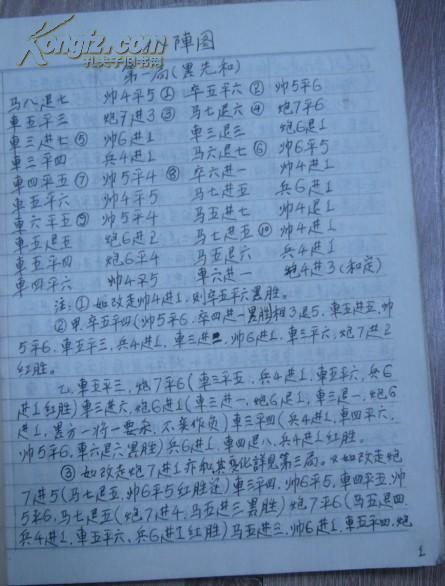 Kongfz.com
孔夫子旧书网
陣图
第一局(黑先和)
马八退七 帅4平5 ① 卒五平六 ② 帅5平6
車五平三 炮7进3 ③ 马七退六 ④ 炮7平6
車三进七 ⑤ 帅6进1 車三退三 炮6退1
車三平四 兵4进1 马六退七 ⑥ 帅6平5
車四平五 ⑦ 帅5平4 ⑧ 卒六进一 帅4进1
車五平六 帅4平5 马七进五 兵6进1
車六平五 ⑨ 帅5平4 马五进七 帅4退1
車五退五 炮6进2 马七进五 ⑩ 帅4进1
車五平四 炮6平4 马五退六 兵4进1
車四平六 帅4平5 車六进一 炮4进3 (和定)
注: ① 如改走帅4进1, 则卒五平六黑胜。
② 甲. 卒五平四(帅5平6. 卒四进一黑胜)相3退5. 車五进五, 帅
5平6. 車五平三, 兵4进1, 車三进, 帅6进1, 車三平六, 炮7进2
红胜。
乙. 車五平三, 炮7平6(車三平五, 兵4进1, 車五平六, 兵6
进1红胜)車三进六, 炮6进1(車三进一, 炮6退1, 車三退一, 炮6
进1, 黑方一将一要杀, 不美作负)車三平四(兵4进1, 車四平六,
帅5平6, 車六退六黑胜)兵6进1, 車四退八, 兵4进1红胜。
③ 如改走炮7进1亦和其变化詳見第三局。又如改走炮
7进5(马七退五, 帅6平5红胜定)車三平四, 帅6平5, 車四平五, 帅
5平6, 马七退五(炮7进4, 马五进三黑胜)炮7平6(马五退四
兵4进1, 車五平六, 兵6进1红胜)马五进三, 帅6进1, 車五平四, 炮
1